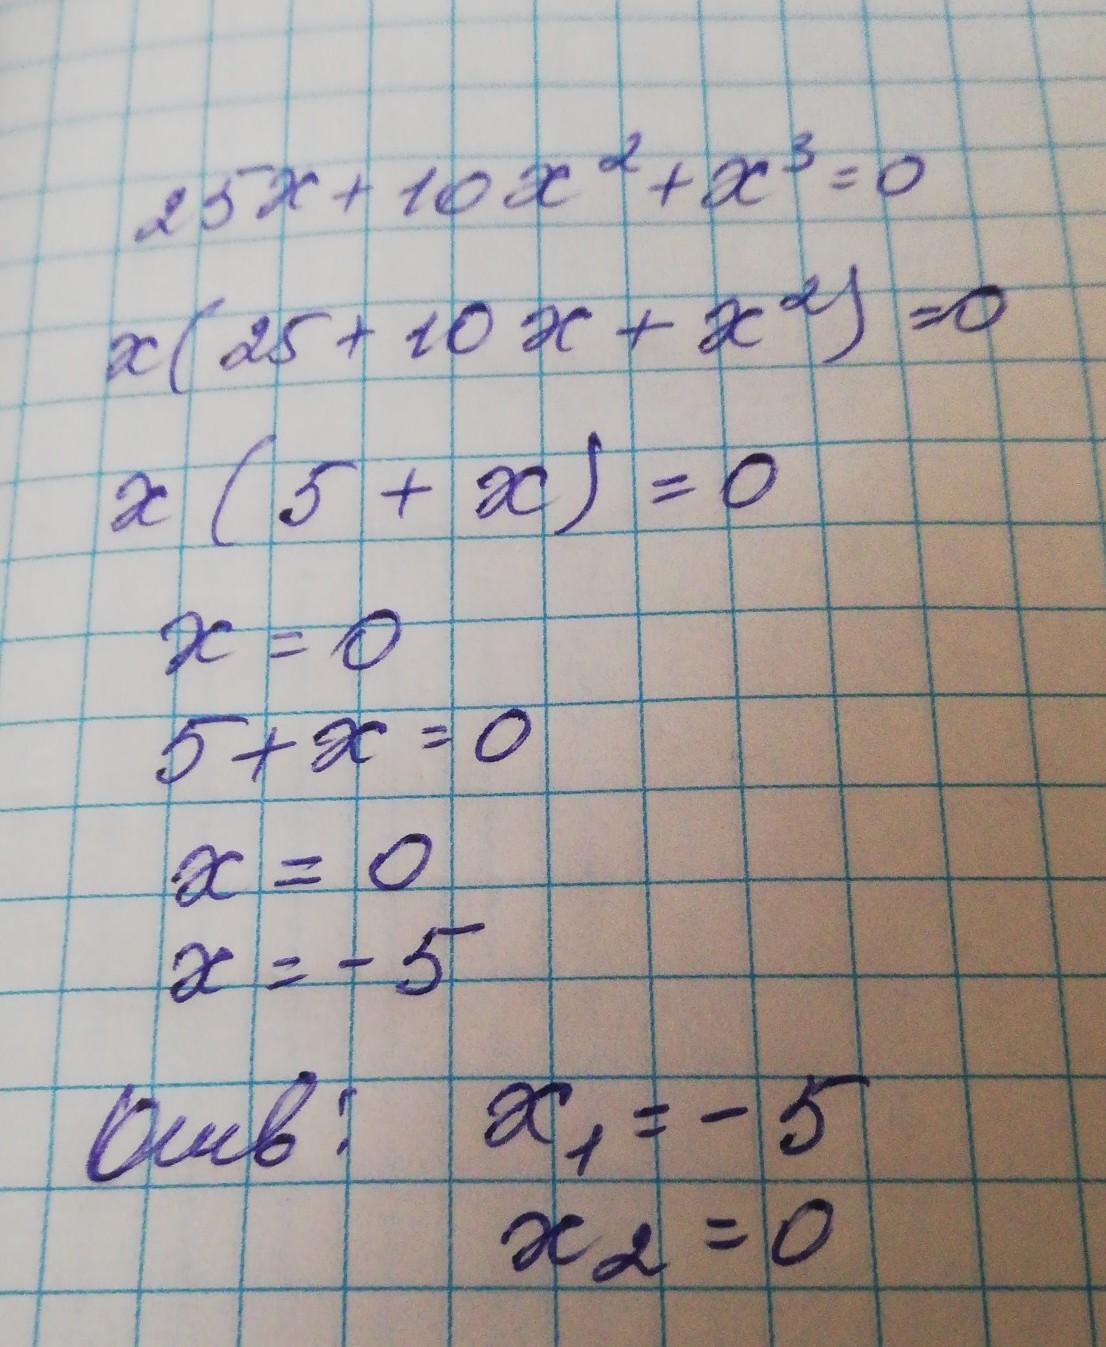 25x + 10x² + x³ = 0
x(25 + 10x + x²) = 0
x(5 + x) = 0
x = 0
5 + x = 0
x = 0
x = -5
Отв: x₁ = -5
x₂ = 0